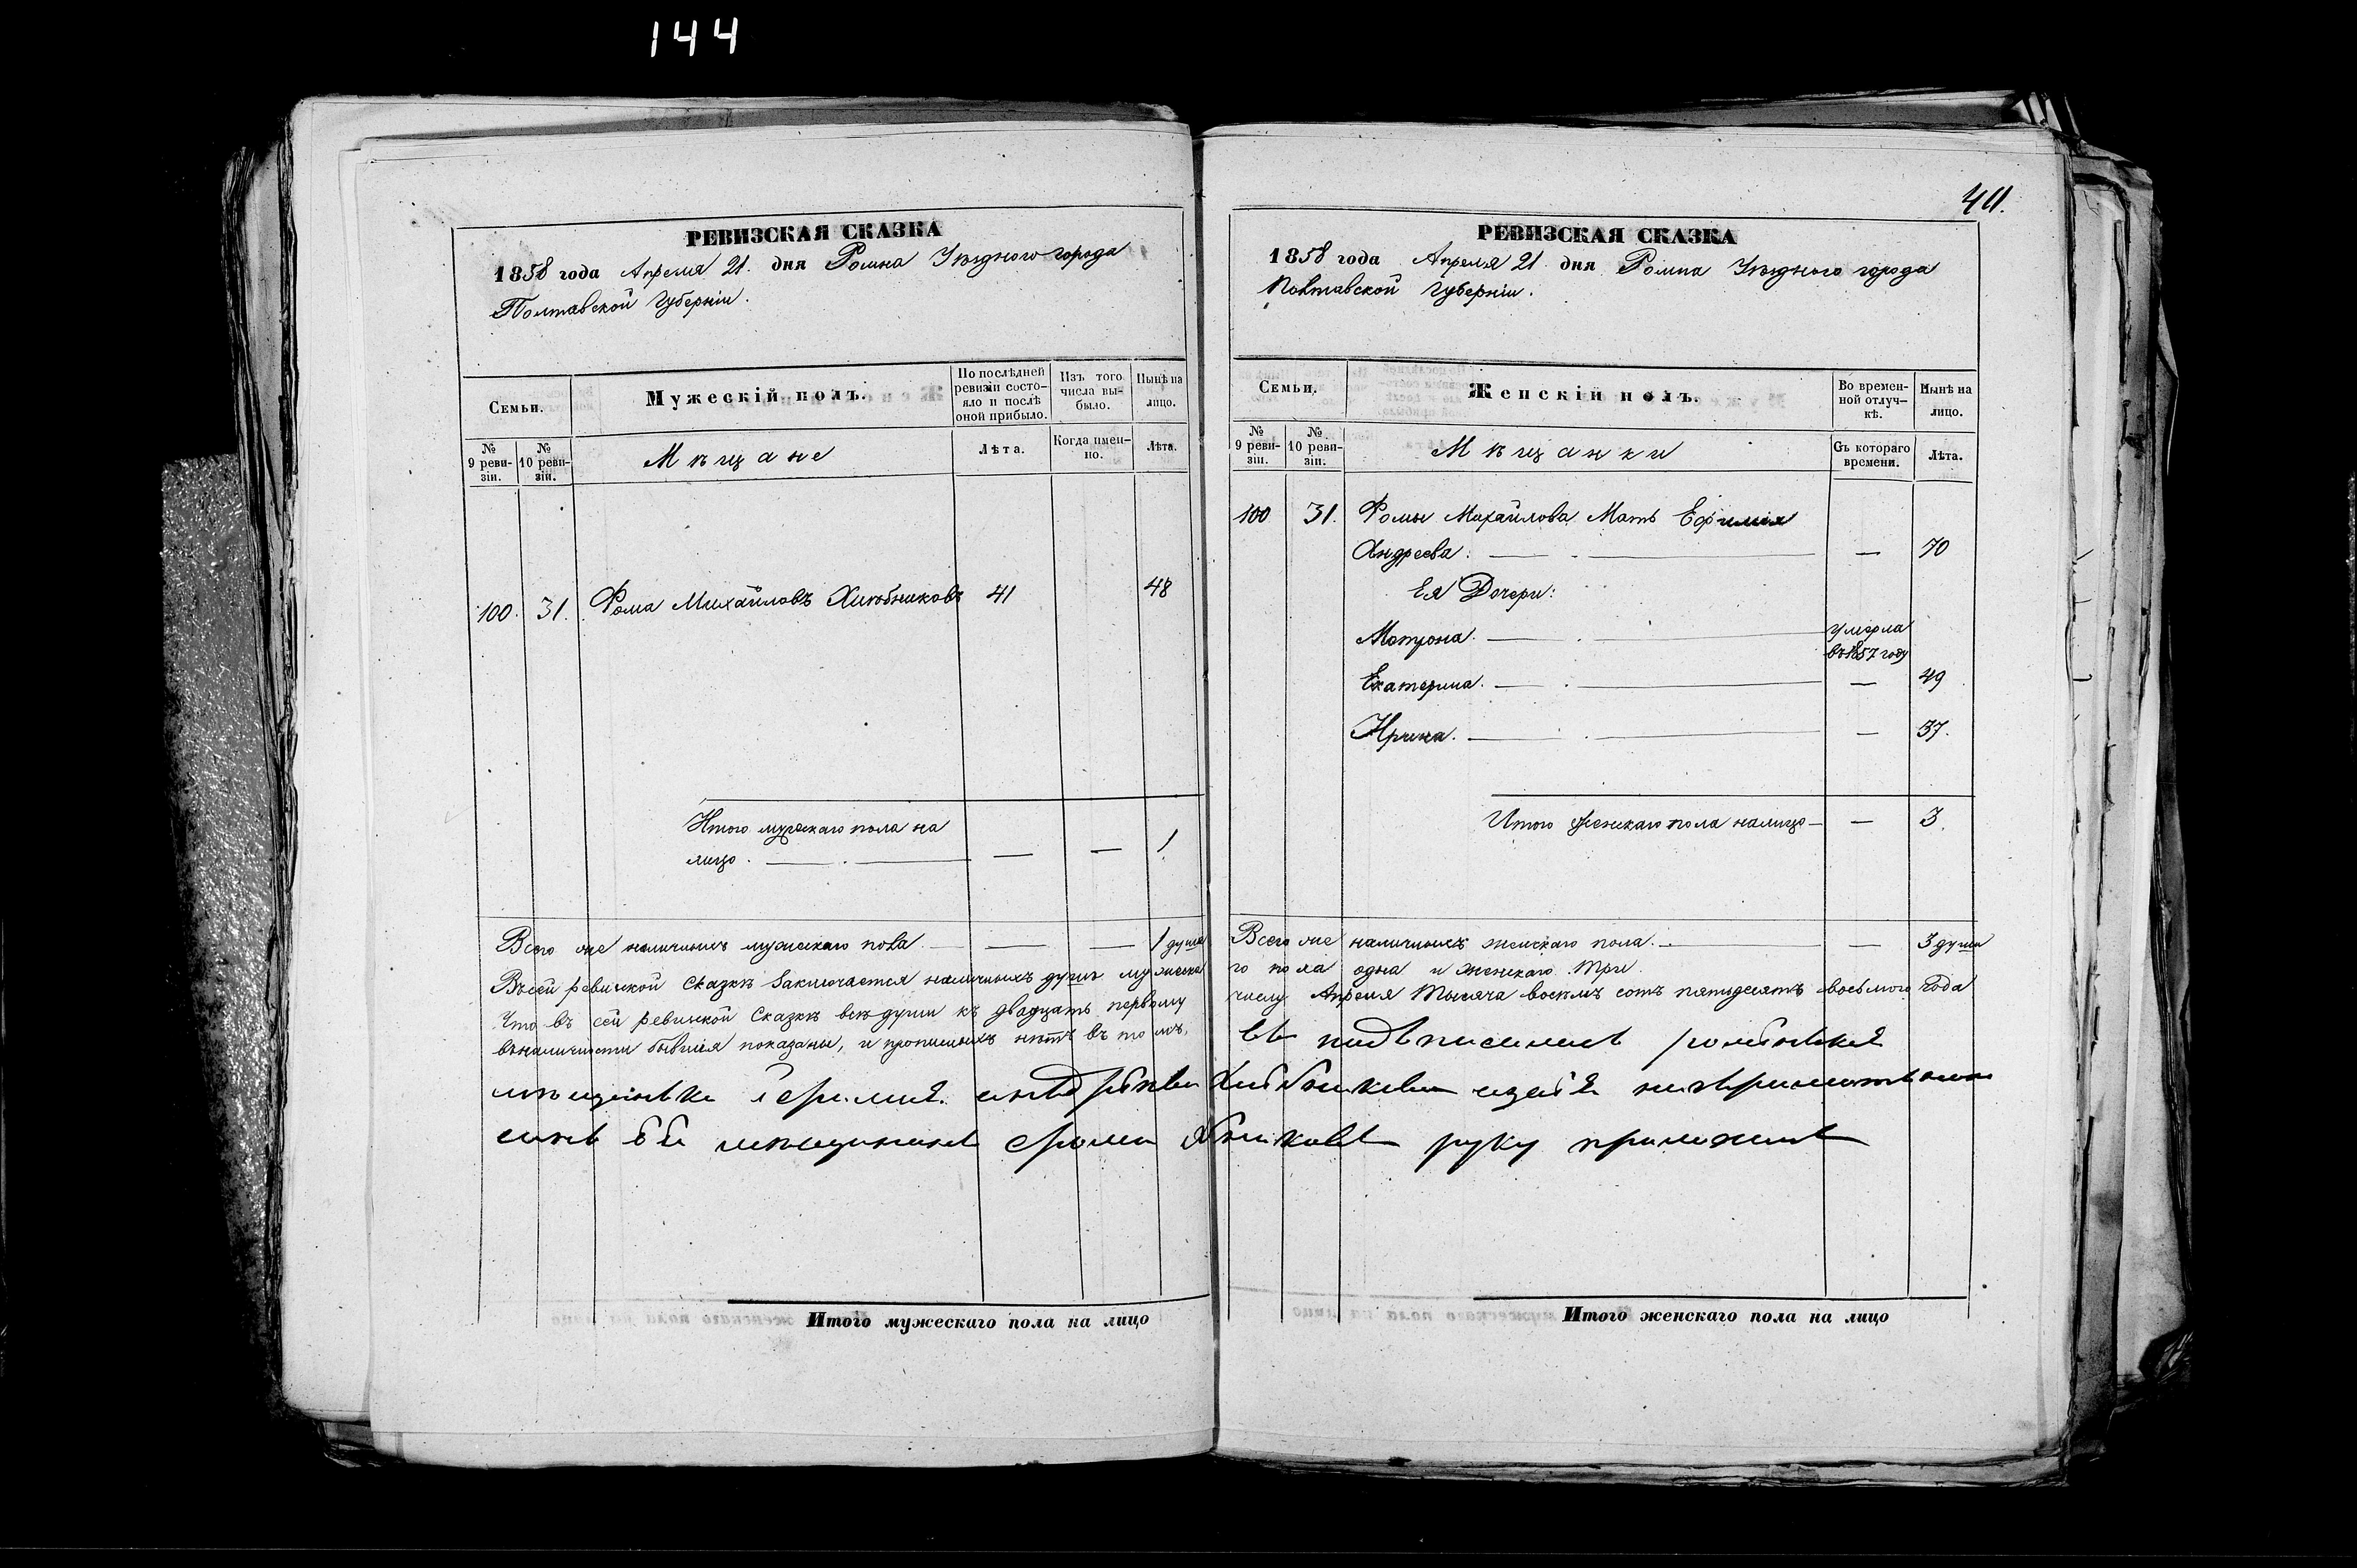 144
РЕВИЗСКАЯ СКАЗКА
1858 года Апреля 21. дня Ромна Уѣзднаго города
Полтавской Губерніи.
Семьи.
Мужескій полъ.
По послѣдней ревизіи состояло и послѣ оной прибыло.
Изъ того числа выбыло.
Нынѣ на лицо.
№ 9 ревизіи.
№ 10 ревизіи.
Мѣщане
Лѣта.
Когда именно.
Лѣта.
100. 31. Фома Михайловъ Хлѣбниковъ 41 48
Итого мужескаго пола на
лицо. — — — 1
Всего же наличныхъ мужескаго пола — — — 1 душа
Въ сей ревизской Сказкѣ Заключается наличныхъ душъ мужеска
Что въ сей ревизской Сказкѣ всѣ души къ двадцать первому
въ наличности бывшія показаны, и прописныхъ нѣтъ въ томъ,
мѣщанка
руку
Итого мужескаго пола на лицо
411.
РЕВИЗСКАЯ СКАЗКА
1858 года Апреля 21 дня Ромна Уѣзднаго города
Полтавской Губерніи.
Семьи.
Женскій полъ.
Во временной отлучкѣ.
Нынѣ на лицо.
№ 9 ревизіи.
№ 10 ревизіи.
Мѣщанки
Съ котораго времени.
Лѣта.
100 31. Фомы Михайлова Мать Ефимія
Андреева. — — — 70
Ея Дочери:
Матрона. — умерла въ 1857 году
Екатерина. — — — 49
Ирина. — — — 37.
Итого женскаго пола налицо — — 3.
Всего же наличныхъ женскаго пола. — — 3 души
го пола одна и женскаго три.
числу Апреля тысяча восемь сотъ пятьдесятъ восьмого года
руку приложилъ
Итого женскаго пола на лицо